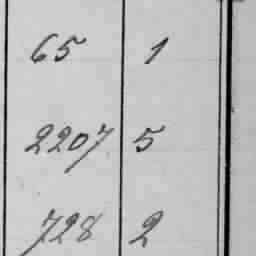 65 1
2207 5
728 2